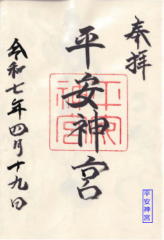 奉拝
平安神宮
平安神宮
令和七年四月十九日
平安神宮